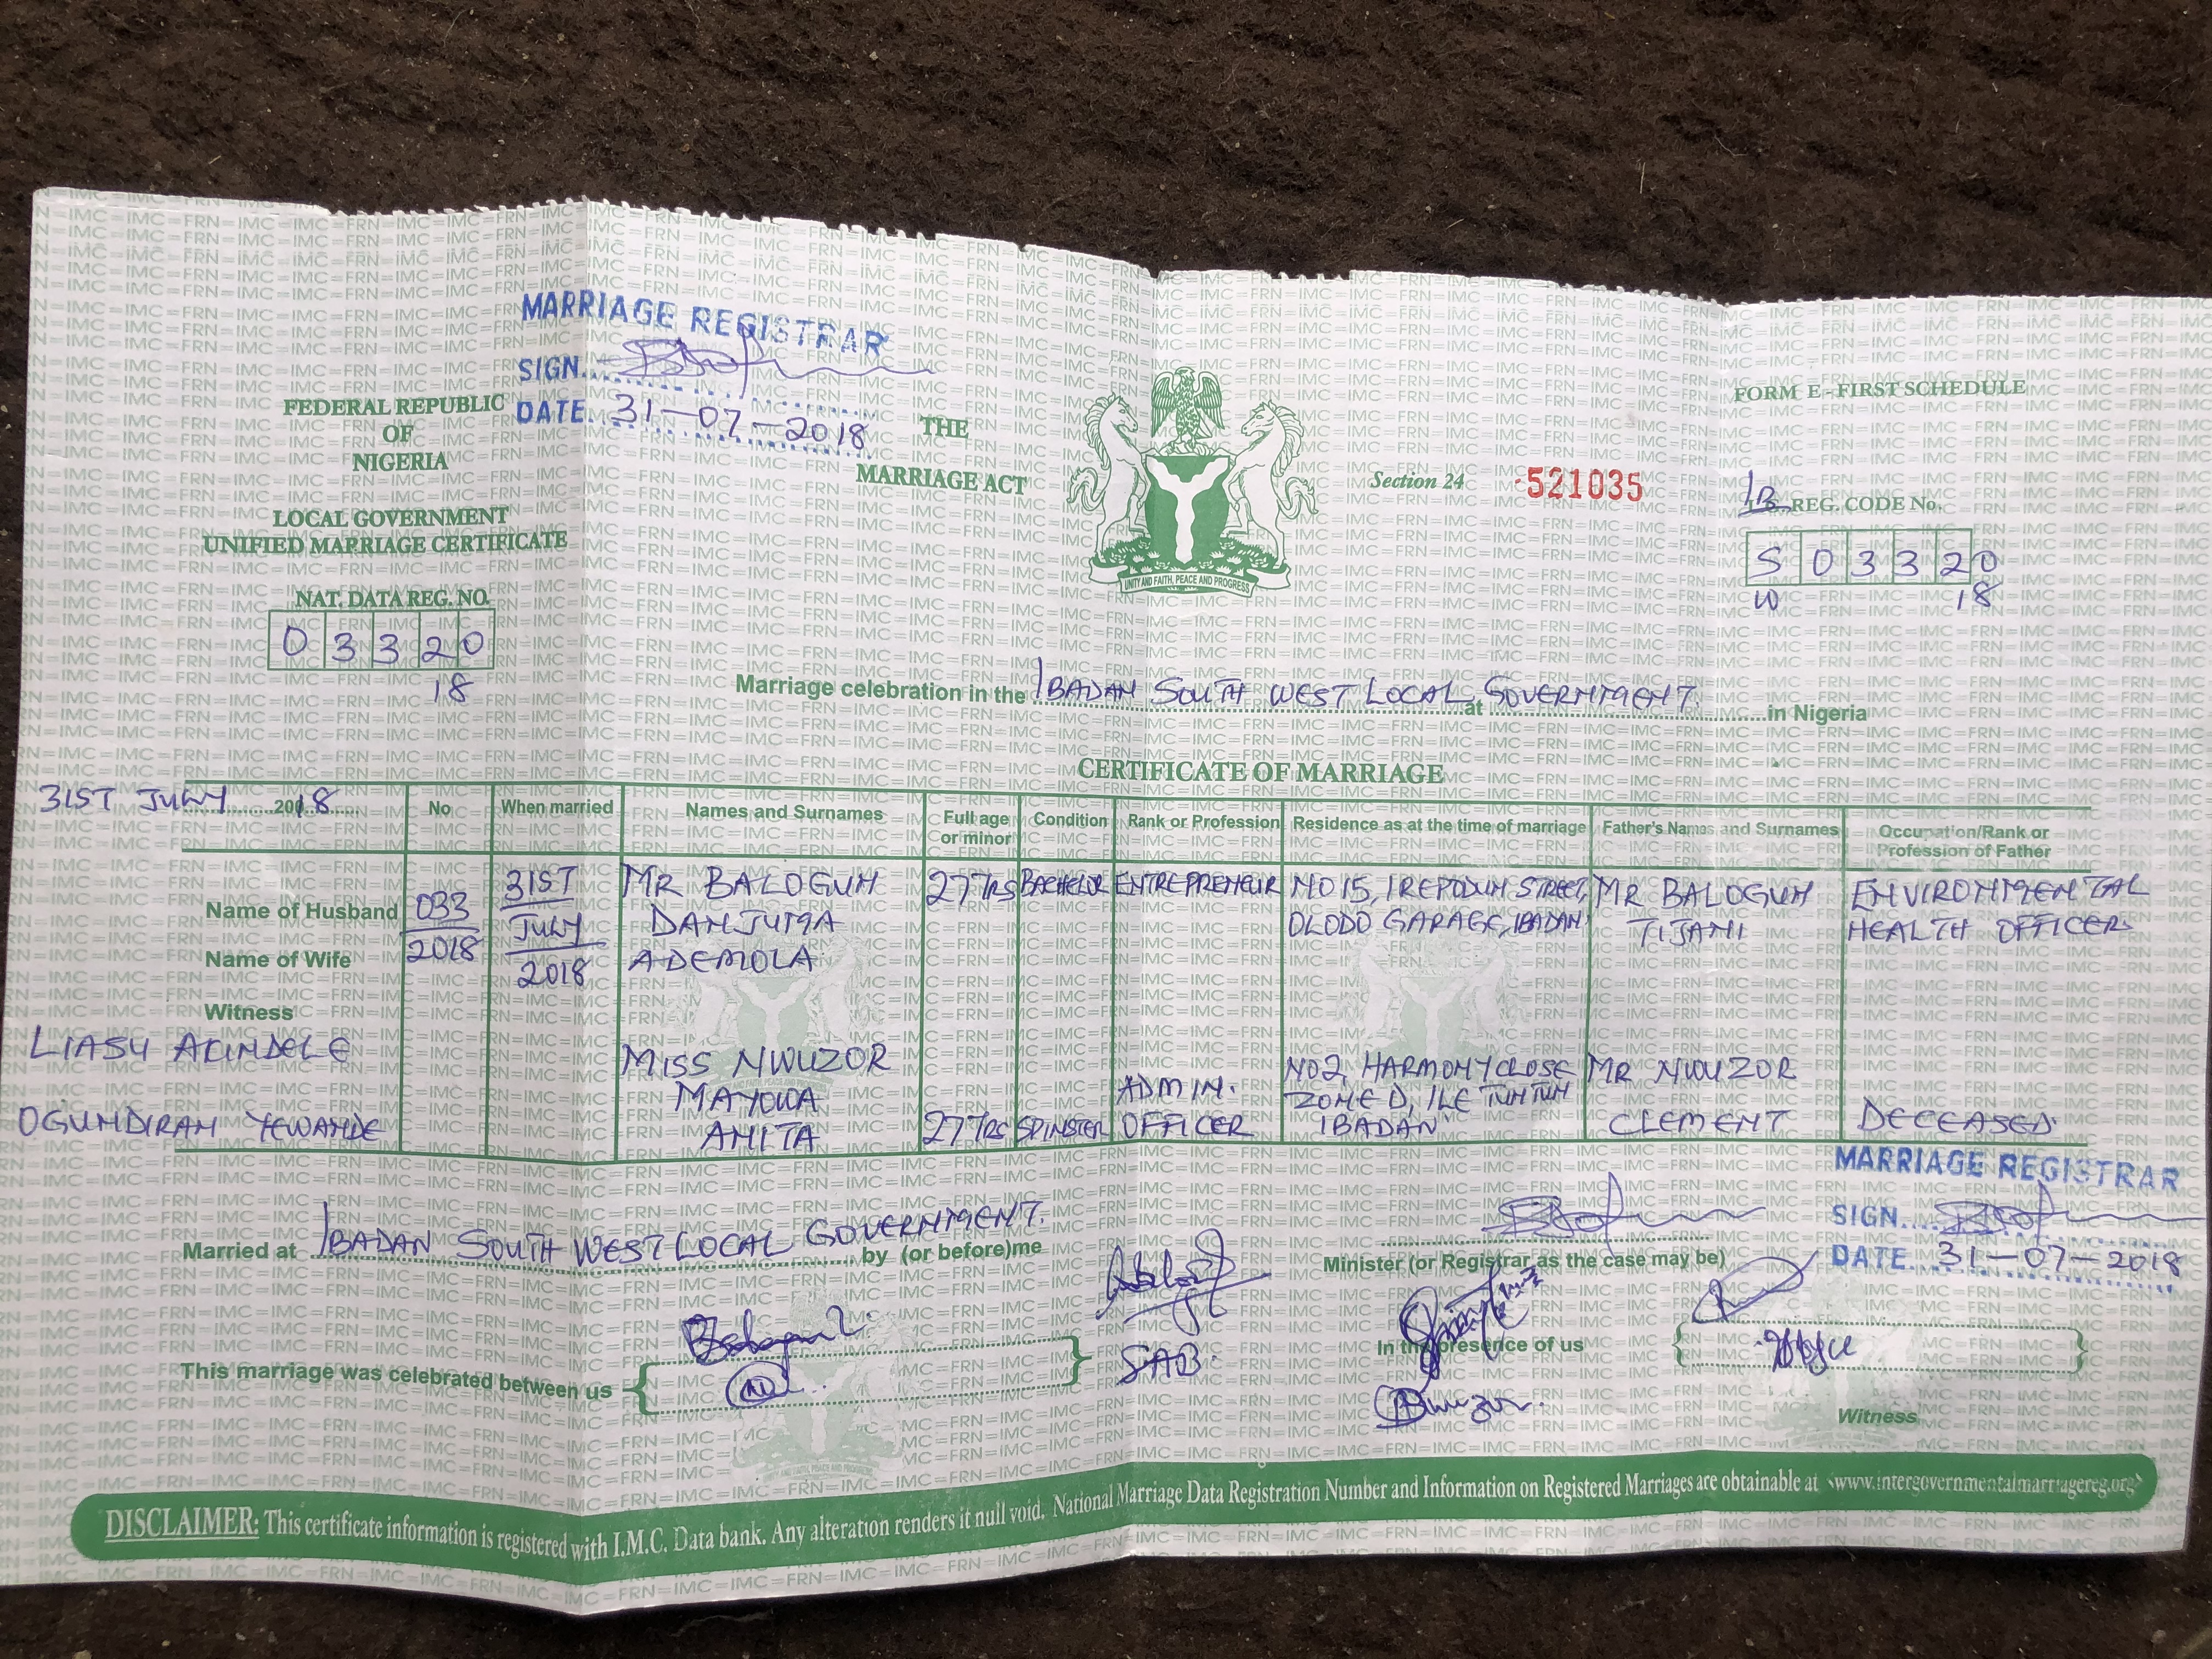 MARRIAGE REGISTRAR
SIGN
DATE 31-07-2018
FEDERAL REPUBLIC
OF
NIGERIA
LOCAL GOVERNMENT
UNIFIED MARRIAGE CERTIFICATE
NAT. DATA REG. NO.
0 3 3 2 0
18
THE
MARRIAGE ACT
UNITY AND FAITH, PEACE AND PROGRESS
Section 24
521035
FORM E - FIRST SCHEDULE
IB REG. CODE No.
S 0 3 3 2 0
W 18
Marriage celebration in the IBADAN SOUTH WEST LOCAL at GOVERNMENT. in Nigeria
CERTIFICATE OF MARRIAGE
31ST JULY 2018
No
When married
Names and Surnames
Full age
or minor
Condition
Rank or Profession
Residence as at the time of marriage
Father's Names and Surnames
Occupation/Rank or
Profession of Father
Name of Husband
Name of Wife
Witness
LIASU AKINDELE
OGUNDIRAN YEWANDE
033
2018
31ST
JULY
2018
MR BALOGUN
DANJUMA
ADEMOLA
27YRS
BACHELOR
ENTREPRENEUR
NO 15, IREPODUN STREET,
OLODO GARAGE, IBADAN
MR BALOGUN
TIJANI
ENVIRONMENTAL
HEALTH OFFICER
MISS NWUZOR
MAYOWA
ANITA
27YRS
SPINSTER
ADMIN.
OFFICER
NO2, HARMONY CLOSE
ZONE D, ILE TUNTUN
IBADAN
MR NWUZOR
CLEMENT
DECEASED.
Married at IBADAN SOUTH WEST LOCAL GOVERNMENT. by (or before) me
Minister (or Registrar as the case may be)
MARRIAGE REGISTRAR
SIGN
DATE 31-07-2018
This marriage was celebrated between us
In the presence of us
Witness
DISCLAIMER: This certificate information is registered with I.M.C. Data bank. Any alteration renders it null void. National Marriage Data Registration Number and Information on Registered Marriages are obtainable at <www.intergovernmentalmarriagereg.org>